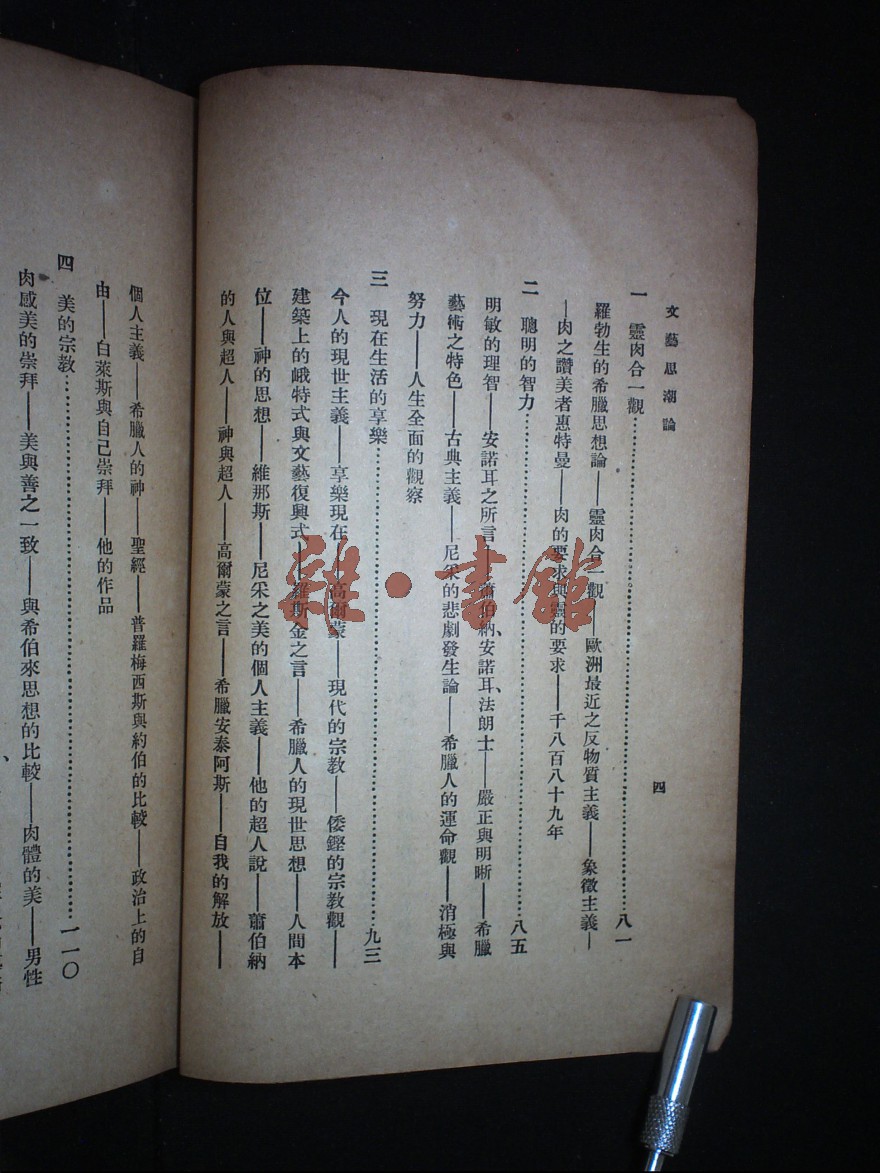 文藝思潮論
四
一 靈肉合一觀……八一
羅勃生的希臘思想論——靈肉合一觀——歐洲最近之反物質主義——象徵主義—
—肉之讚美者惠特曼——肉的要求與靈的要求——千八百八十九年
二 聰明的智力……八五
明敏的理智——安諾耳之所言——蕭伯納、安諾耳、法朗士——嚴正與明晰——希臘
藝術之特色——古典主義——尼采的悲劇發生論——希臘人的運命觀——消極與
努力——人生全面的觀察
三 現在生活的享樂……九三
今人的現世主義——享樂現在——高爾蒙——現代的宗教——倭鏗的宗教觀——
建築上的峨特式與文藝復興式——羅斯金之言——希臘人的現世思想——人間本
位——神的思想——維那斯——尼采之美的個人主義——他的超人說——蕭伯納
的人與超人——神與超人——高爾蒙之言——希臘安泰阿斯——自我的解放——
個人主義——希臘人的神——聖經——普羅梅西斯與約伯的比較——政治上的自
由——白萊斯與自己崇拜——他的作品
四 美的宗教……一一〇
肉感美的崇拜——美與善之一致——與希伯來思想的比較——肉體的美——男性
雜·書館